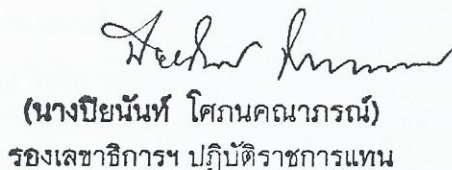 (นางปิยนันท์ โศภนคณาภรณ์)
รองเลขาธิการฯ ปฏิบัติราชการแทน